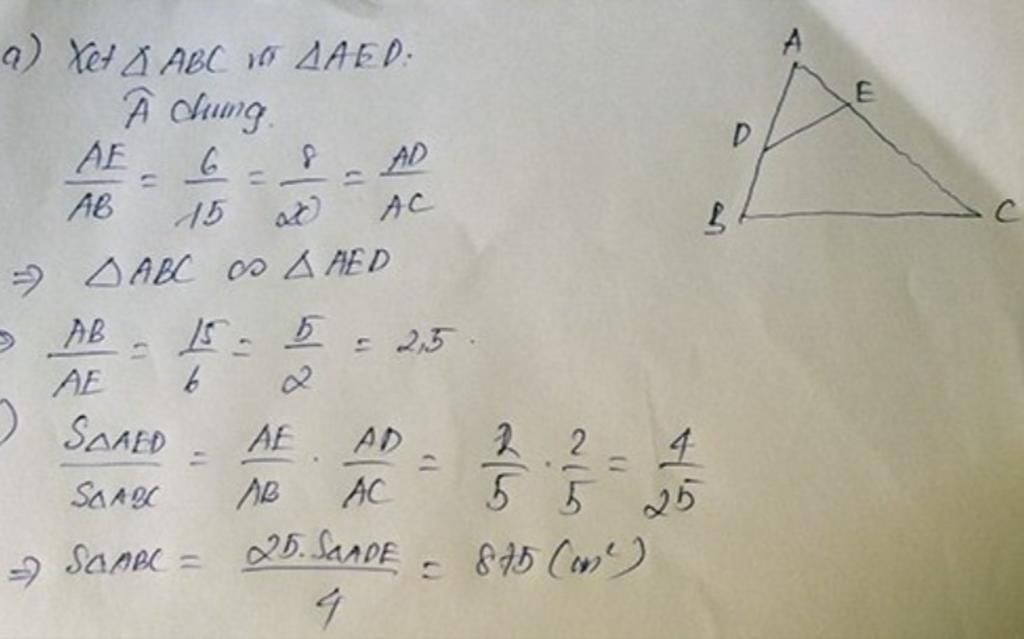 a) Xét ΔABC và ΔAED:
Â chung.
AE/AB = 6/15 = 8/20 = AD/AC
⇒ ΔABC ∽ ΔAED
⇒ AB/AE = 15/6 = 5/2 = 2,5.
) SΔAED/SΔABC = AE/AB . AD/AC = 2/5 . 2/5 = 4/25
⇒ SΔABC = 25.SΔADE/4 = 875 (cm²)
A
E
D
B
C